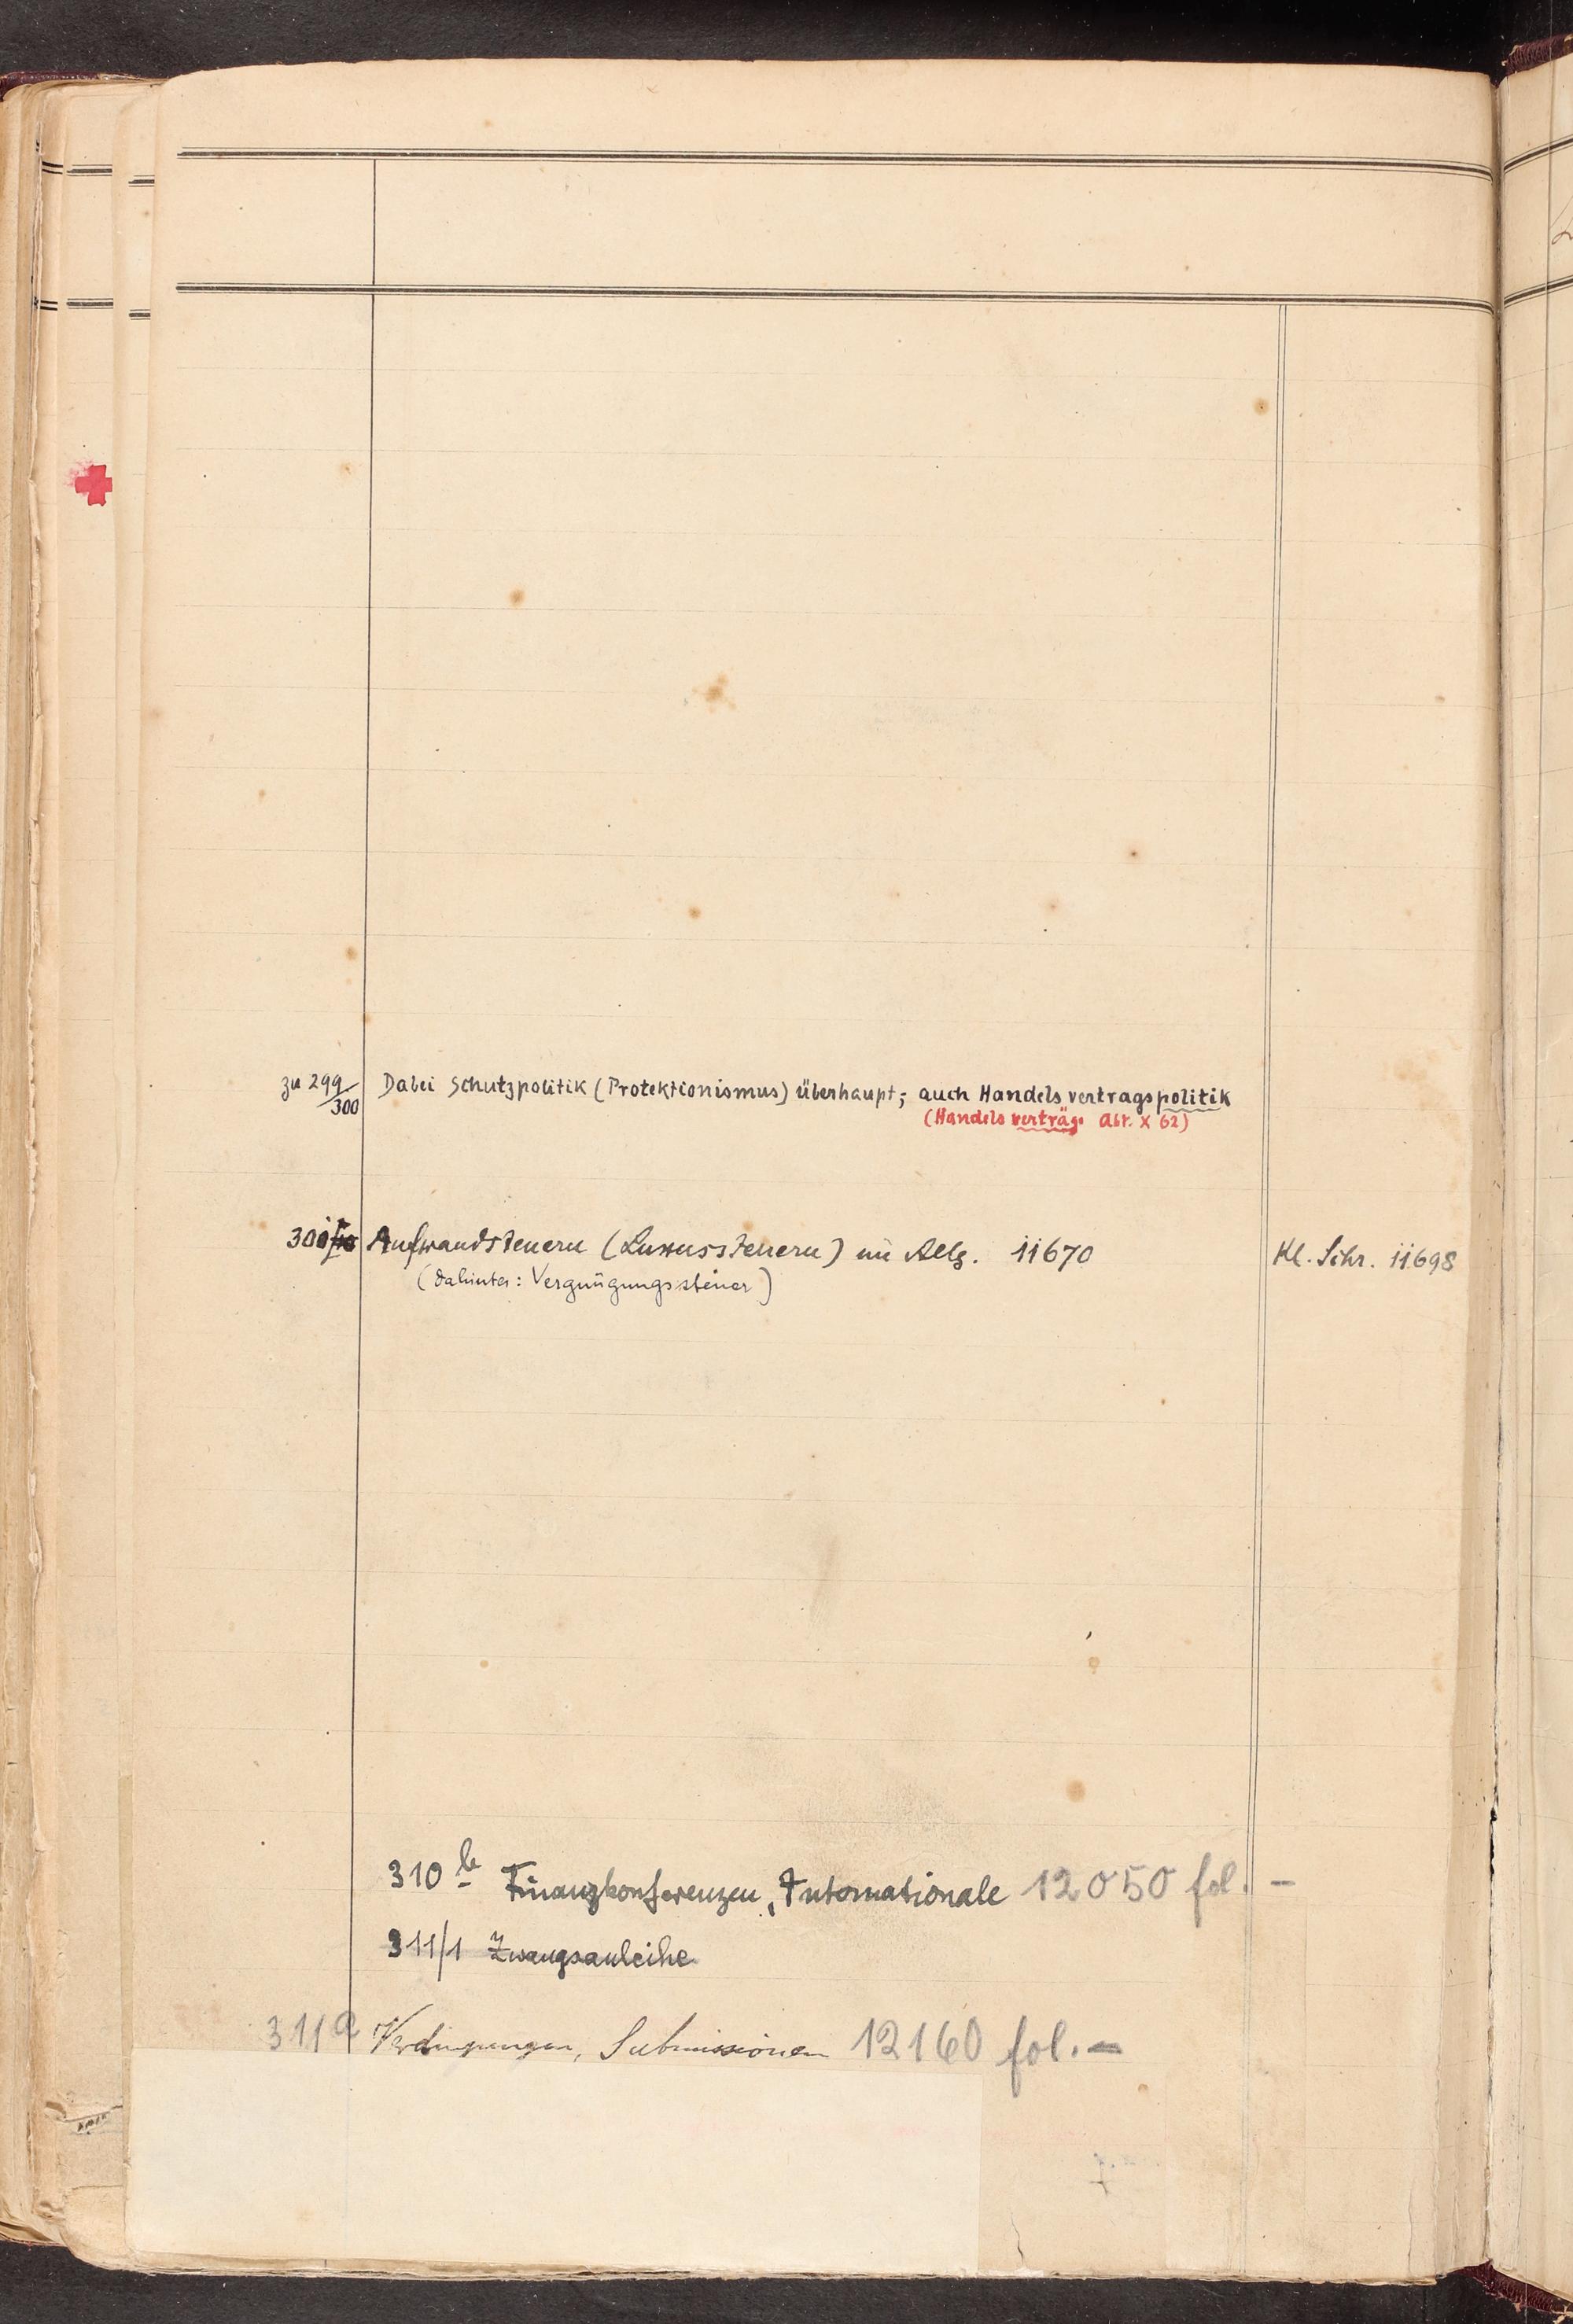 zu 299/300 Dabei Schutzpolitik (Protektionismus) überhaupt; auch Handelsvertragspolitik
(Handelsverträge Abt. X 62)
300 Aufwandsteuern (Luxussteuern) im Allg. 11670 Kl. Schr. 11698
(dahinter: Vergnügungssteuer)
310b Finanzkonferenzen, Internationale 12050 fol. –
311/1 Zwangsanleihe
311a Verdingungen, Submissionen 12160 fol. –